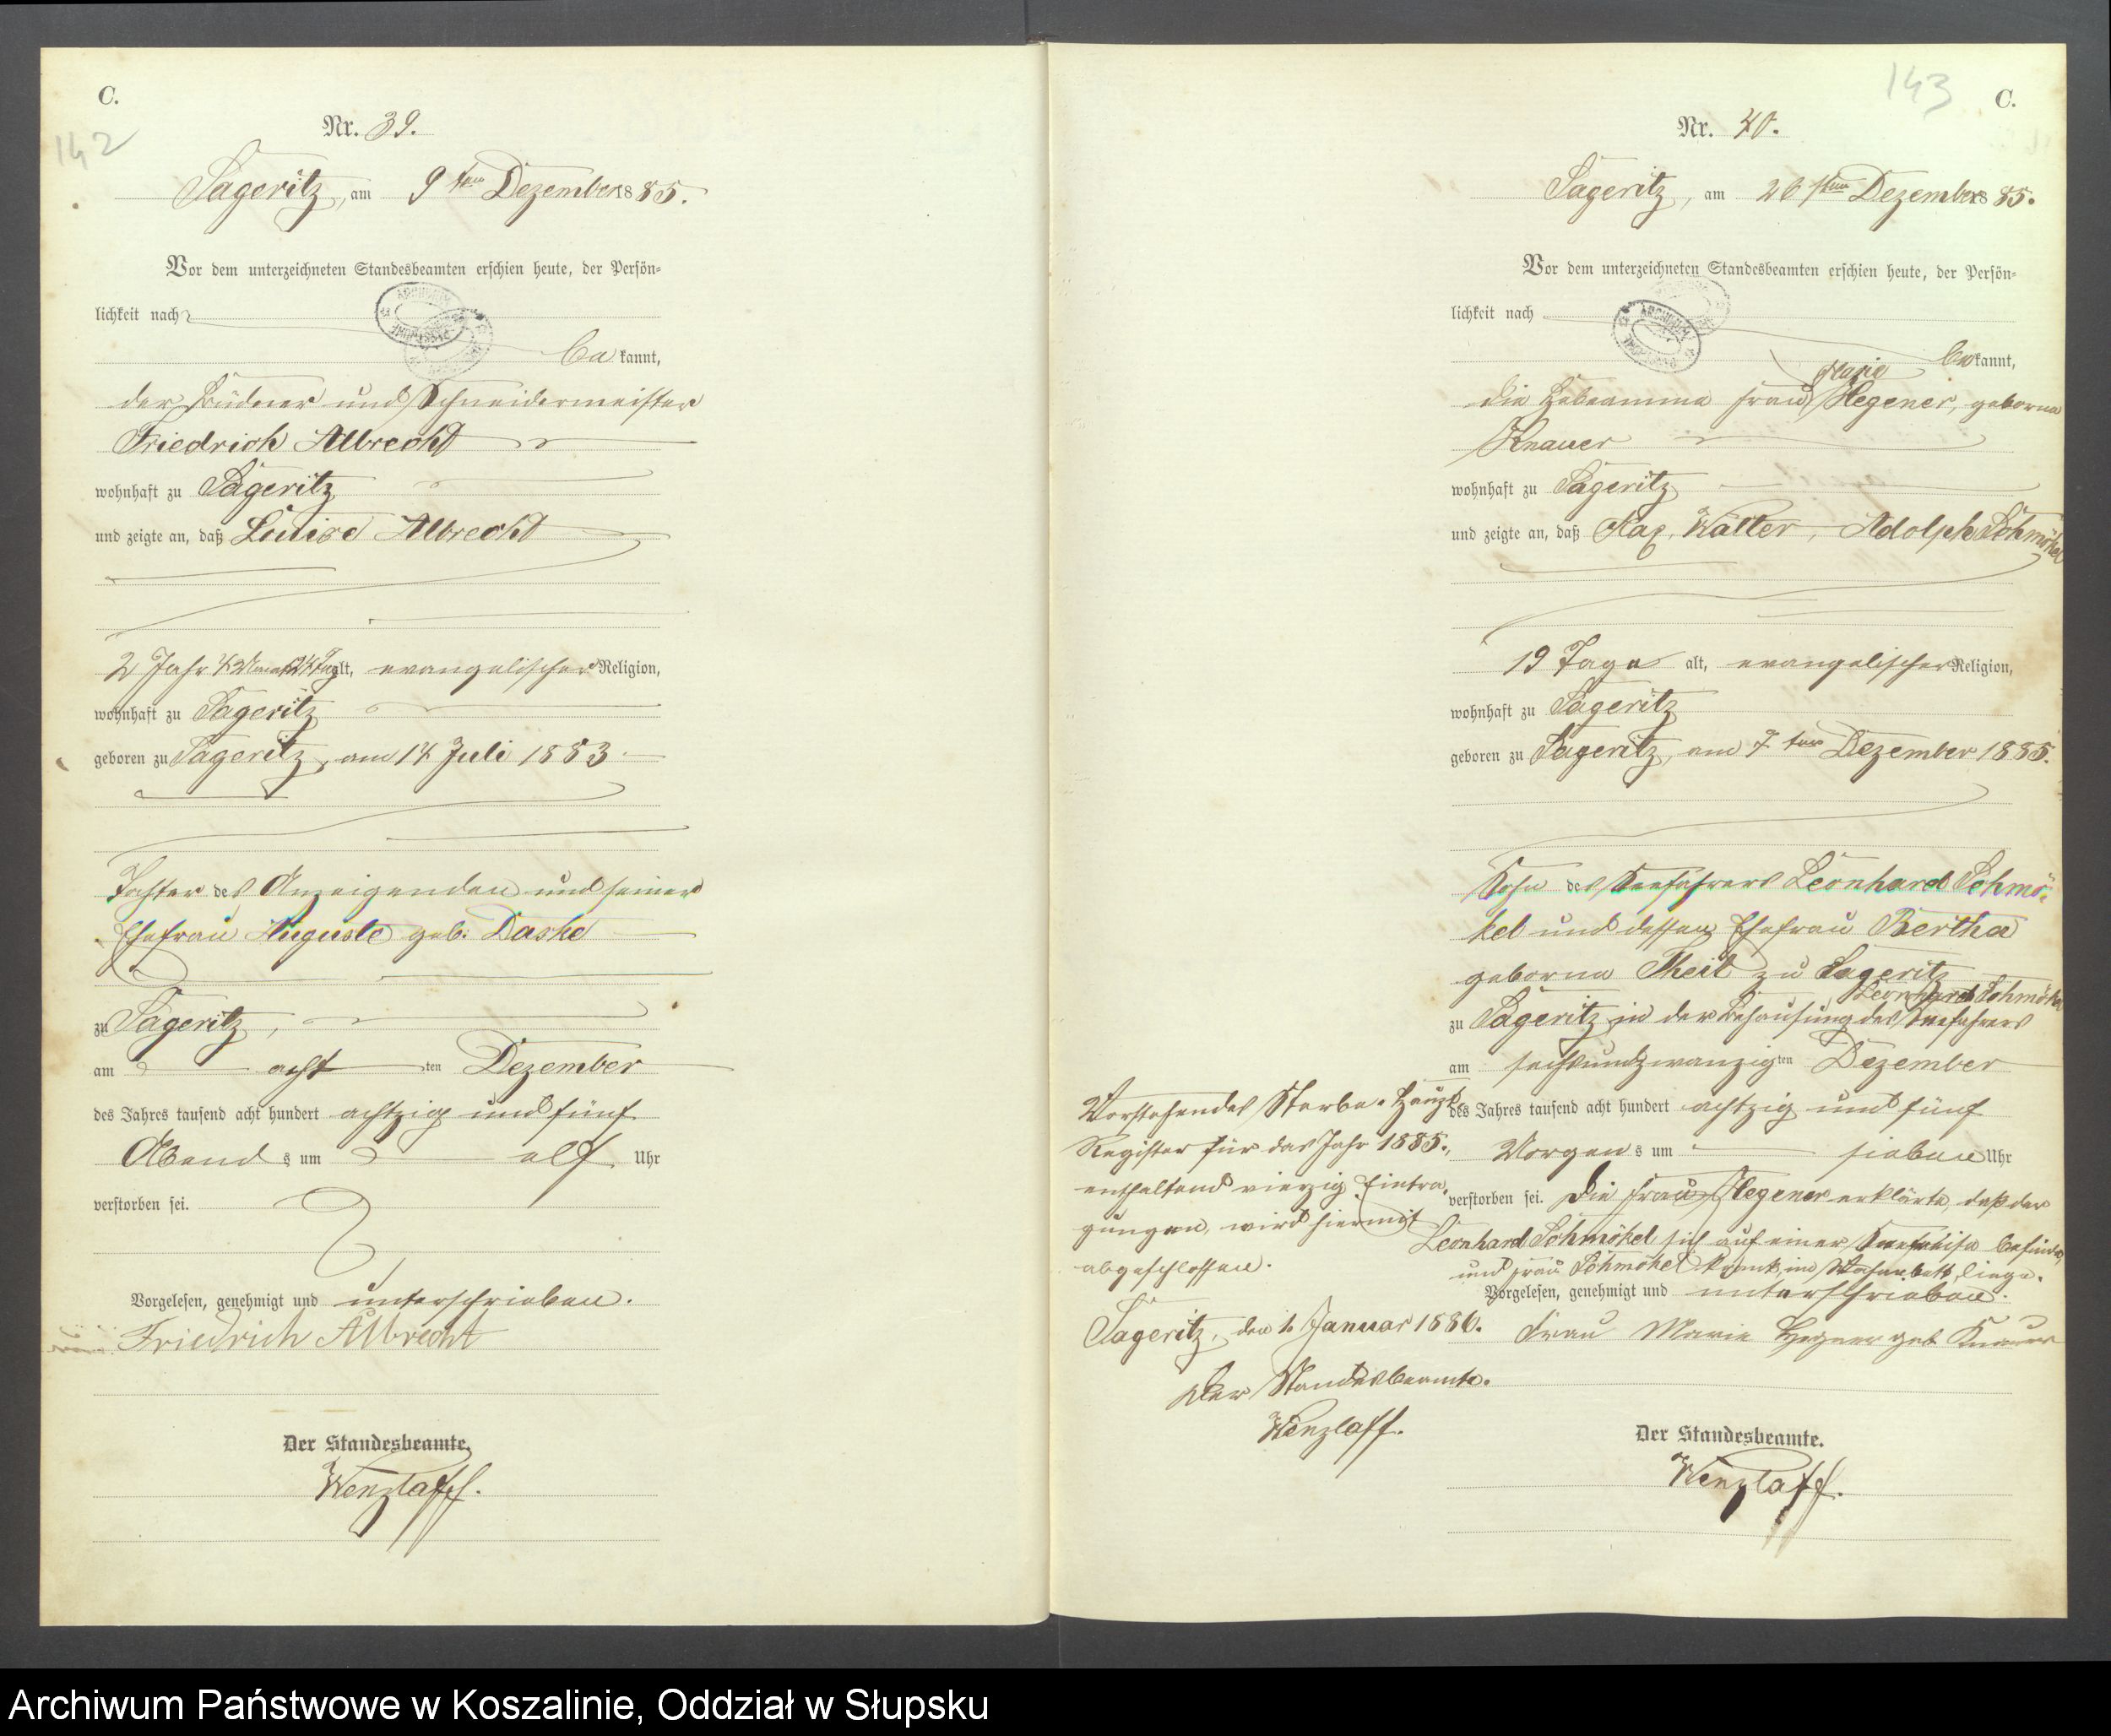 C.
142
Nr. 39.
Sageritz, am 9ten Dezember 1885.
Vor dem unterzeichneten Standesbeamten erschien heute, der Persön-
lichkeit nach
bekannt,
der Büdner und Schneidermeister
Friedrich Albrecht
wohnhaft zu Sageritz
und zeigte an, daß Louise Albrecht
2 Jahr 4 Monat 24 Tag alt, evangelischer Religion,
wohnhaft zu Sageritz
geboren zu Sageritz, am 14 Juli 1883
Tochter des Anzeigenden und seiner
Ehefrau Auguste geb. Daske
zu Sageritz,
am acht ten Dezember
des Jahres tausend acht hundert achtzig und fünf
Abends um elf Uhr
verstorben sei.
Vorgelesen, genehmigt und unterschrieben.
Friedrich Albrecht
Der Standesbeamte.
Wenzlaff.
143
C.
Nr. 40.
Sageritz, am 26sten Dezember 1885.
Vor dem unterzeichneten Standesbeamten erschien heute, der Persön-
lichkeit nach
bekannt,
die Hebeamme Frau Hegener, geborne
Knauer
wohnhaft zu Sageritz
und zeigte an, daß Max, Walter, Adolph Schmökel
19 Tage alt, evangelischer Religion,
wohnhaft zu Sageritz
geboren zu Sageritz, am 7ten Dezember 1885.
Sohn des Seefahrers Leonhard Schmö-
kel und dessen Ehefrau Bertha
geborne Theil zu Sageritz
Leonhard Schmökel
zu Sageritz in der Behausung des Seefahrers
am sechsundzwanzigten Dezember
des Jahres tausend acht hundert achtzig und fünf
Morgens um sieben Uhr
verstorben sei. Die Frau Hegener erklärte, daß der
Leonhard Schmökel sich auf einer Seereise befinde,
und Frau Schmökel krank, im Wochenbett, liege.
Vorgelesen, genehmigt und unterschrieben.
Frau Marie Hegner geb Knauer
Der Standesbeamte.
Wenzlaff.
Vorstehendes Sterbe-Haupt-
Register für das Jahr 1885.,
enthaltend vierzig Eintra-
gungen, wird hiermit
abgeschlossen.
Sageritz, den 1. Januar 1886.
Der Standesbeamte.
Wenzlaff.
Archiwum Państwowe w Koszalinie, Oddział w Słupsku